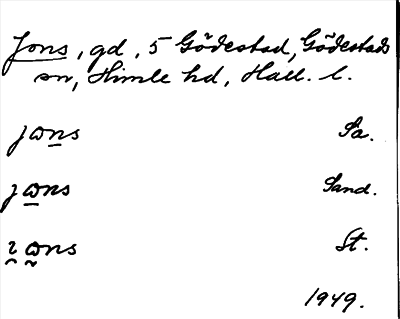 Jons, gd, 5 Gödestad, Gödestads
sn, Himle hd, Hall. l.
jωns Sa.
jωns Sand.
ɩ̰ω̰ns St.
1949.